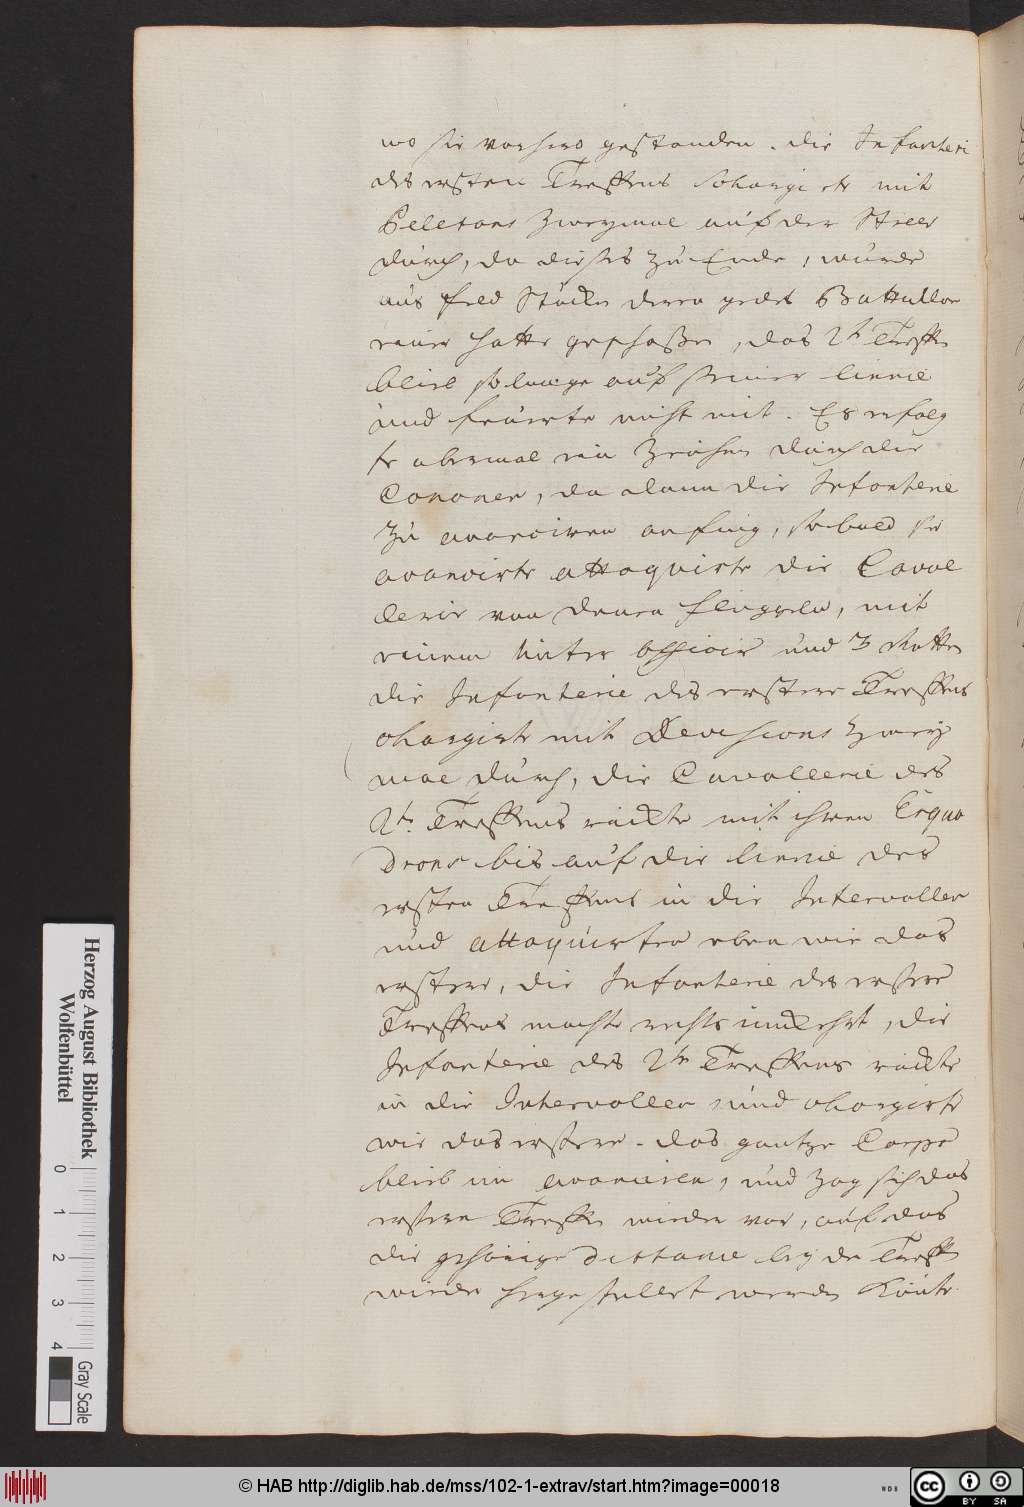 wo sie vorhero gestanden. die Infanteri
des ersten Treffens schargirte mit
Peletons zweymal auf der Stelle
durch, da dieses zu Ende, wurde
aus feld Stücken deren jedes Battallon
einen hatte geschoßen, das 2te Treffen
blieb so lange auf seiner linnie
und feuerte nicht mit. Es erfolg
te abermal ein Zeichen durch die
Canonen, da dann die Infanterie
zu avanciren anfing, sobald sie
avancirte attaquirte die Caval
lerie von denen flüggeln, mit
einem Unter officier und 3 Rotten
die Infanterie des ersteren Treffens
chargirte mit Devisions zwey
mal durch, die Cavallerie des
2ten Treffens rückte mit ihren Esqua
drons bis auf die linnie des
ersten Treffens in die Intervallen
und attaquirten eben wie das
erstere, die Infanterie des erstere
Treffens machte rechts umkehrt, die
Infanterie des 2ten Treffens rückte
in die Intervallen und chargirte
wie das erstere. das gantze Corps
blieb im avanciren, und zog sich das
erstere Treffen wieder vor, auf das
die gehörige distance bey den Treffen
wieder hergestellet werden könte.
Herzog August Bibliothek
Wolfenbüttel
0 1 2 3 4
Gray Scale
© HAB http://diglib.hab.de/mss/102-1-extrav/start.htm?image=00018
WDB
cc BY SA